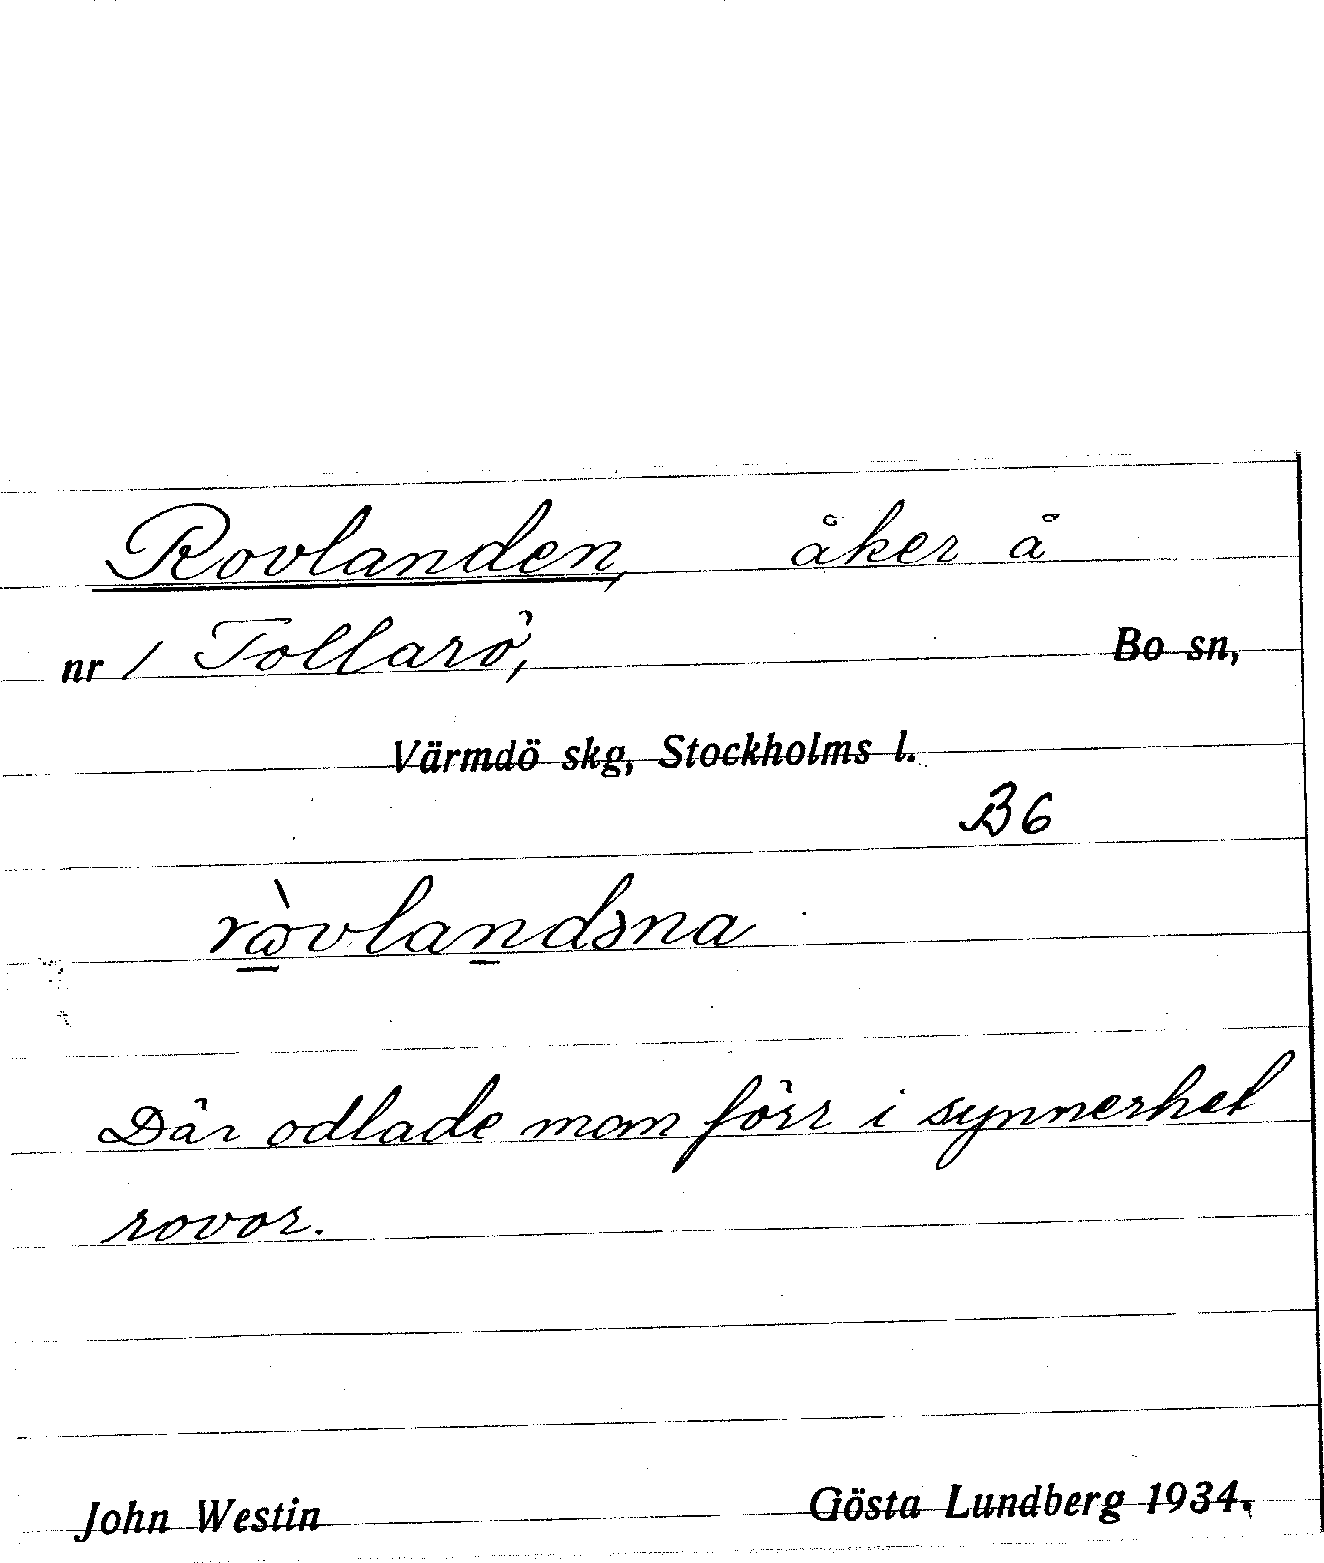 Rovlanden, åker å
nr 1 Tollarö, Bo sn,
Värmdö skg, Stockholms l.
B6
ròvlandəna
Där odlade man förr i synnerhet
rovor.
John Westin Gösta Lundberg 1934.